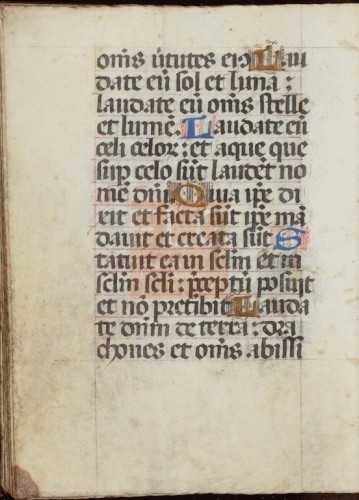 om̄s v̄tutes eiꝰ Lau
date eū sol et luna :
laudate eū om̄s stelle
et lumē. Laudate eū
celi celoꝝ : et aque que
suꝑ celo sūt laudēt no
mē dn̄i Quia ip̄e di
xit et facta sūt ip̄e mā
dauit et creata sūt S
tatuit ea in sc̄lm et in
sc̄lm sc̄li : p̄ceptū posuit
et nō p̄teribit Lauda
te dnm̄ de terra : dra
chones et om̄s abissi